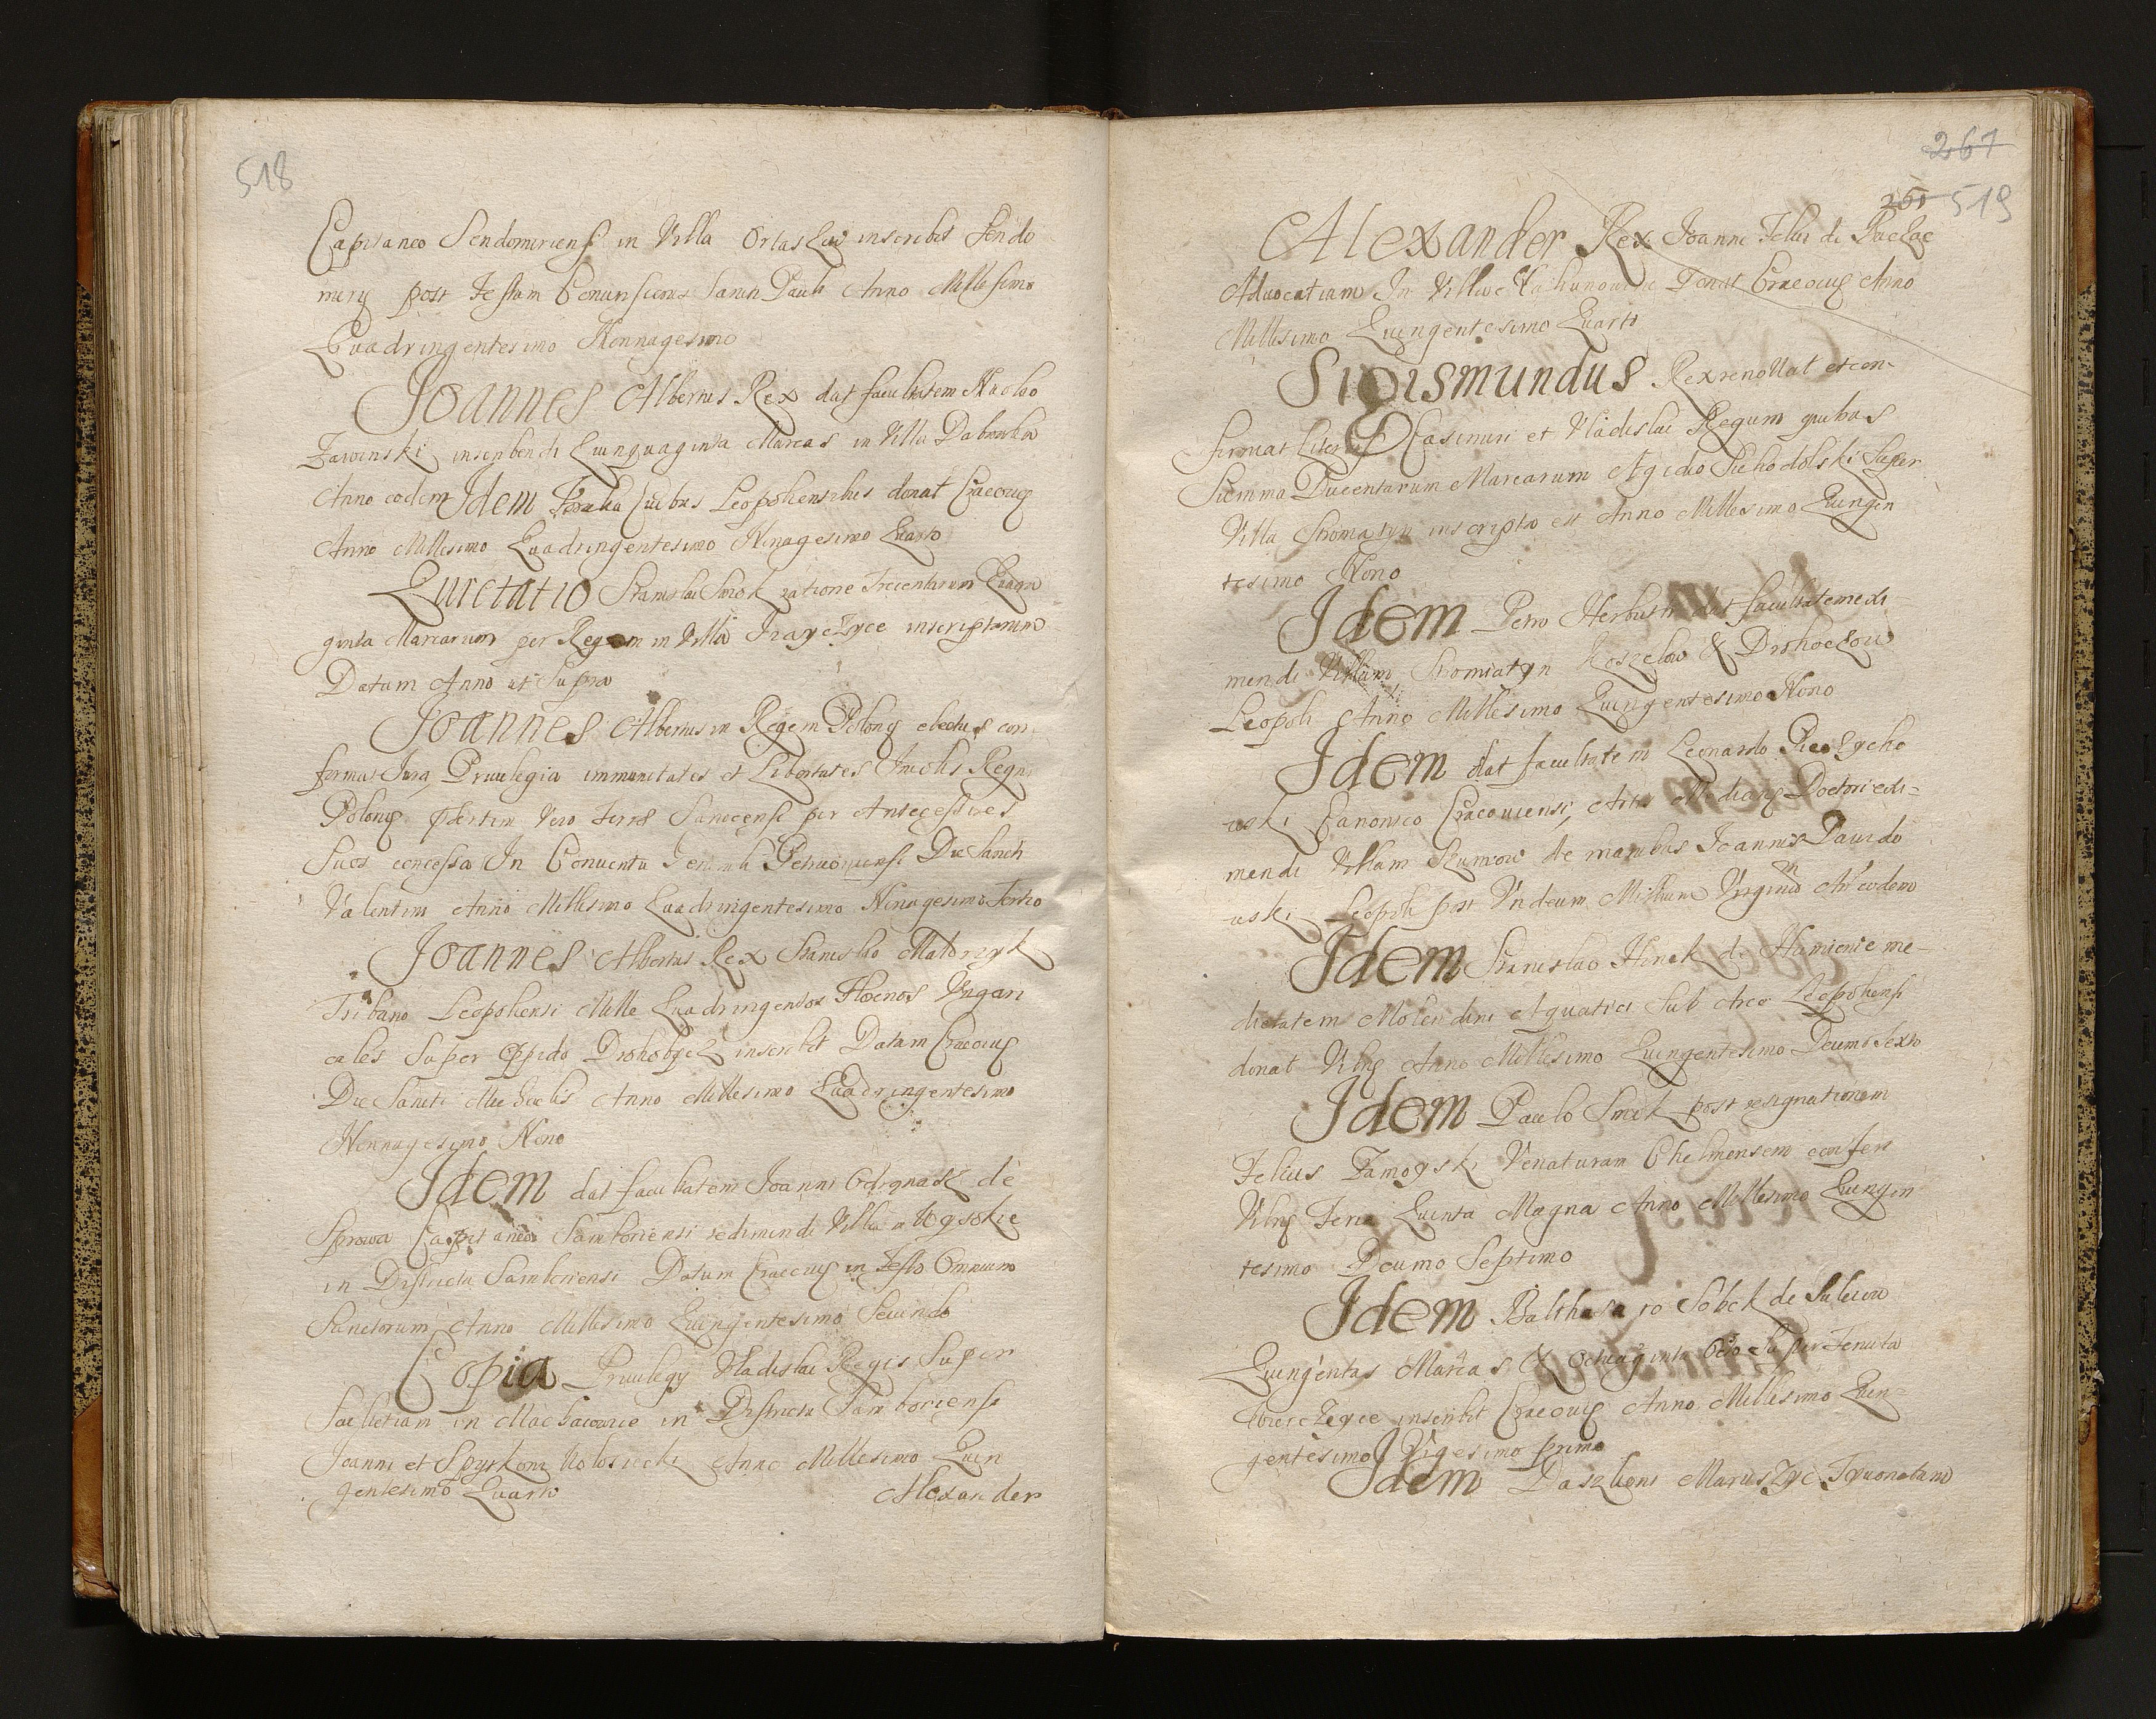 518
Capitaneo Sendomiriensi in Villa inscribit Sendo
mirij post Festam Conuersionis Sancti Pauli Anno Millesimo
Quadringentesimo Nonnagesimo
Joannes Albertus Rex dat facultatem
Zawinski inscribendi Quinquaginta Marcas in Villa Dabrowka
Anno eodem Idem Ciuibus Leopoliensibus donat Cracouiæ
Anno Millesimo Quadringentesimo Nonagesimo Quarto
Quietatio Stanislai ratione Trecentarum Quagin
ginta Marcarum per Regem in Villa inscriptarum
Datum Anno ut Supra
Joannes Albertus in Regem Poloniæ electus con
firmat Jura, Priuilegia immunitates et Libertates Incolis Regni
Poloniæ Vero Terræ Sanocensi per Antecessores
Suos concessa In Conuentu Petricouiensi Die Sancti
Valentini Anno Millesimo Quadringentesimo Nonagesimo Tertio
Joannes Albertus Rex Stanislao
Tribuno Leopoliensi Mille Quadringentos Florenos Vngari
cales Super Oppido Drohobycz inscribit Datum Cracouiæ
Die Sancti Michaelis Anno Millesimo Quadringentesimo
Nonnagesimo Nono
Idem dat facultatem Joanni Odrowasz de
Sprowa Capitaneo Samboriensi redimendi Villam Wysokie
in Districtu Samboriensi Datum Cracouiæ in Festo Omnium
Sanctorum Anno Millesimo Quingentesimo Secundo
Copia Priuilegij Vladislai Regis Super
Scultetiam in in Districtu Samboriensi
Joanni et Anno Millesimo Quin
gentesimo Quarto
Alexander
267
261 519
Alexander Rex Joanni de
Aduocatiam In Villa Donat Cracouiæ Anno
Millesimo Quingentesimo Quarto
Sigismundus Rex renouat et con-
firmat Literas Casimiri et Vladislai Regum quibus
Summa Ducentarum Marcarum Agidio Suchodolski Super
Villa Stromiatyn inscripta est Anno Millesimo Quingen
tesimo Nono
Idem Petro Herburth dat facultatem exi-
mendi Villam Stromiatyn Koszelow & Drohoczow
Leopoli Anno Millesimo Quingentesimo Nono
Idem dat facultatem Leonardo
uski Canonico Cracouiensi, Artis Medicæ Doctori exi-
mendi Villam de manibus Joannis Dauido
uski Leopoli post Vndecim Millium Virginum Anno eodem
Idem Stanislao de me-
dietatem Molendini Aquatici Sub Arce Leopoliensi
donat Vilnæ Anno Millesimo Quingentesimo Decimo Sexto
Idem Paulo post resignationem
Felicis Zamoyski Venaturam Chelmensem confert
Vilnæ Feria Quinta Magna Anno Millesimo Quingen
tesimo Decimo Septimo
Idem Balthasaro Sobek de Suleiow
Quingentas Marcas & Octuaginta Octo Super Tenuta
inscribit Cracouiæ Anno Millesimo Quin-
gentesimo Vigesimo primo
Idem